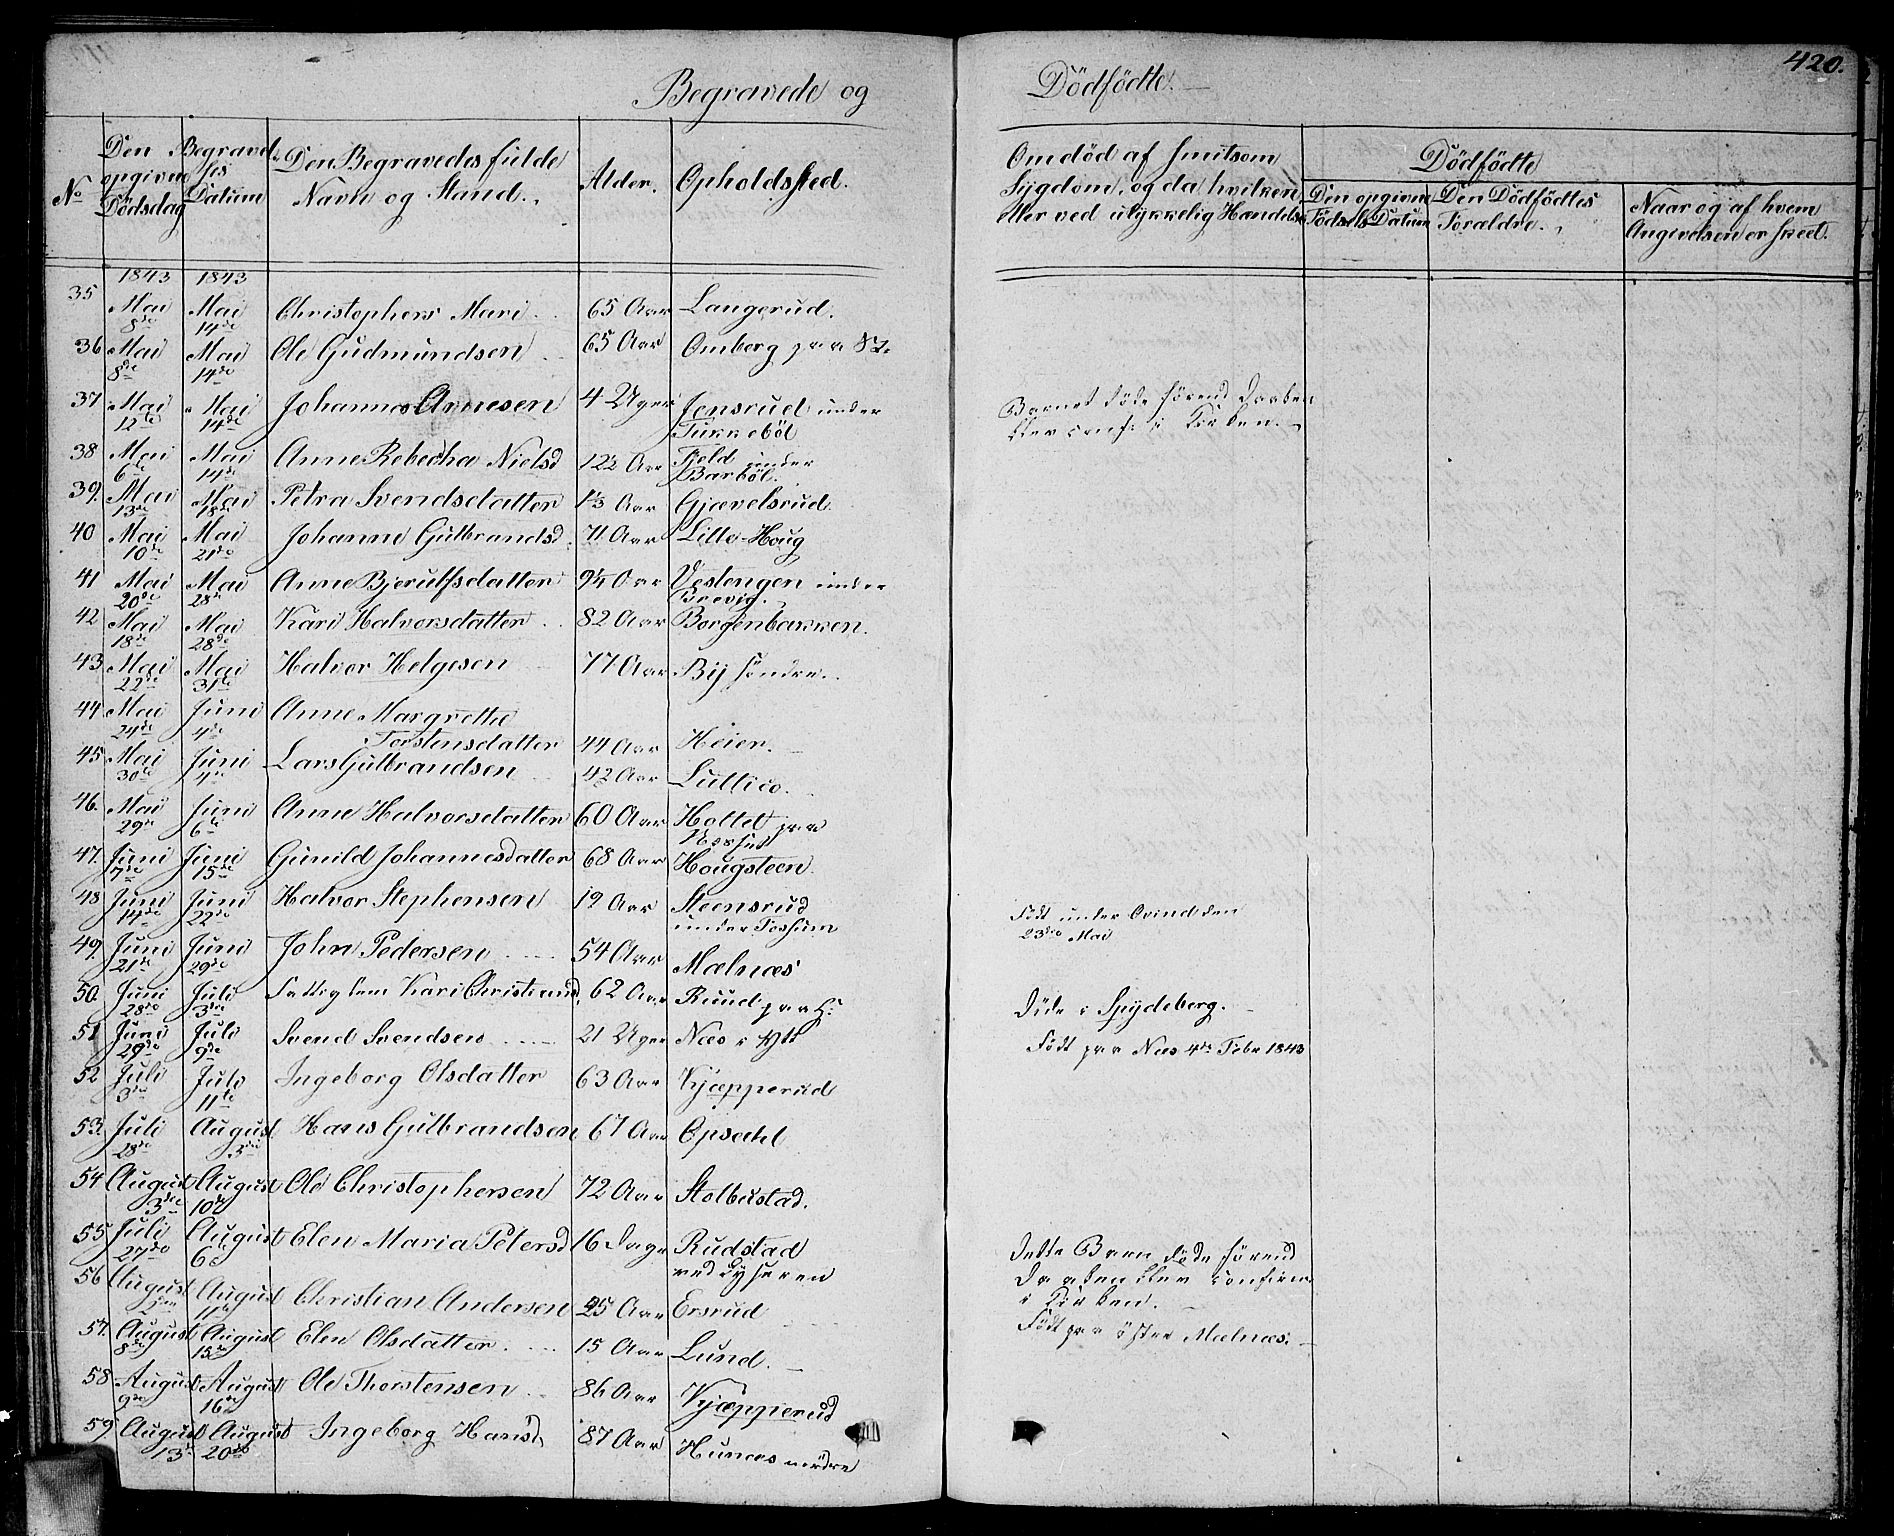 Begravede og Dödfödte.
420.
No
Den opgivne Dödsdag
Begravelses Datum
Den Begravedes fulde Navn og Stand.
Alder.
Opholdssted.
Om död af smitsom Sygdom, og da hvilken, eller ved ulykkelig Handelse
Dödfödte
Den opgivne Födsels Datum
Den Dödfödtes Foraldre.
Naar og af hvem Angivelsen er skeet.
1843 1843
35 Mai 8de Mai 14de Christophers Mari 65 Aar Langerud.
36 Mai 8de Mai 14de Ole Gudmundsen 65 Aar Omberg paa
37 Mai 12te Mai 14de Johannes Arnesen 4 Uger Jonsrud under Tukkeböl Barnet döde förend Daaben blev conf: i Kirken.
38 Mai 6te Mai 14de Anne Rebecha Nielsd 12½ Aar Fjeld under Barböl.
39. Mai 13de Mai 18de Petra Svendsdatter 1⅓ Aar Gjævelsrud
40 Mai 10de Mai 21de Johanne Gulbrandsd. 71 Aar Lille-Houg
41 Mai 20de Mai 28de Anne Bjerulfsdatter 9¼ Aar Vestengen under Brevig.
42 Mai 18de Mai 28de Kari Halvorsdatter 82 Aar Borgenbakken.
43 Mai 22de Mai 31te Halvor Helgesen 77 Aar Bij söndre.
44 Mai 24de Juni 4de Anne Margrethe Torstensdatter 44 Aar Heier.
45 Mai 30te Juni 4de Lars Gulbrandsen 42 Aar
46. Mai 29de Juni 6te Anne Halvorsdatter 60 Aar Holtet paa
47. Juni 7de Juni 15de Gunild Johannesdatter 68 Aar Hougsteen.
48 Juni 14de Juni 22de Halvor Stephensen 19 Aar Steensrud under Fossum Födt under Ovind den 23de Mai
49. Juni 21de Juni 29de John Pedersen 54 Aar Mælnæs
50. Juni 28de Juli 3die Fattiglem Kari Christiansd. 62 Aar Ruud paa Döde i Spydeberg.
51 Juni 29de Juli 9de Svend Svendsen 21 Uger Næs i Födt paa Næs 4de Febr 1843
52 Juli 3die Juli 11te Ingeborg Olsdatter 63 Aar Kjæpperud
53. Juli 28de August 3die Hans Gulbrandsen 67 Aar Opsahl
54 August 3die August 10de Ole Christophersen 72 Aar Stolbustad.
55 Juli 27de August 6te Elen Maria Petersd 16 Dage Rudstad ved Lyseren Dette Barn döde förend Daaben blev confirm: i Kirken.
56 August August 11te Christian Andersen 25 Aar Ersrud
57. August 8de August 15de Elen Olsdatter 15 Aar Lund. Födt paa östre Mælnæs.
58 August 9de August 16de Ole Thorstensen 86 Aar Kjæpperud
59 August 13de August 20de Ingeborg Hansd. 87 Aar Hunæs nordre